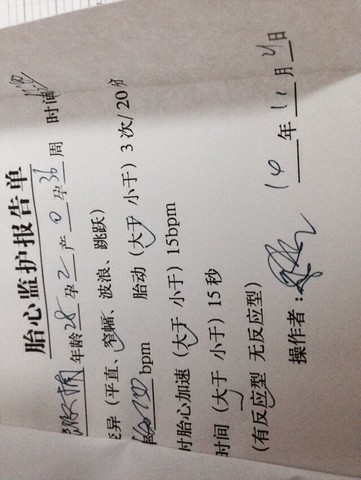 胎心监护报告单
年龄 28 孕 2 产 0 孕 36 周 时间
变异（平直、窄幅、波浪、跳跃）
bpm 胎动（大于 小于）3 次/ 20 分
时胎心加速（大于 小于）15bpm
时间（大于 小于）15 秒
（有反应型 无反应型）
操作者：
14 年 11 月 21 日